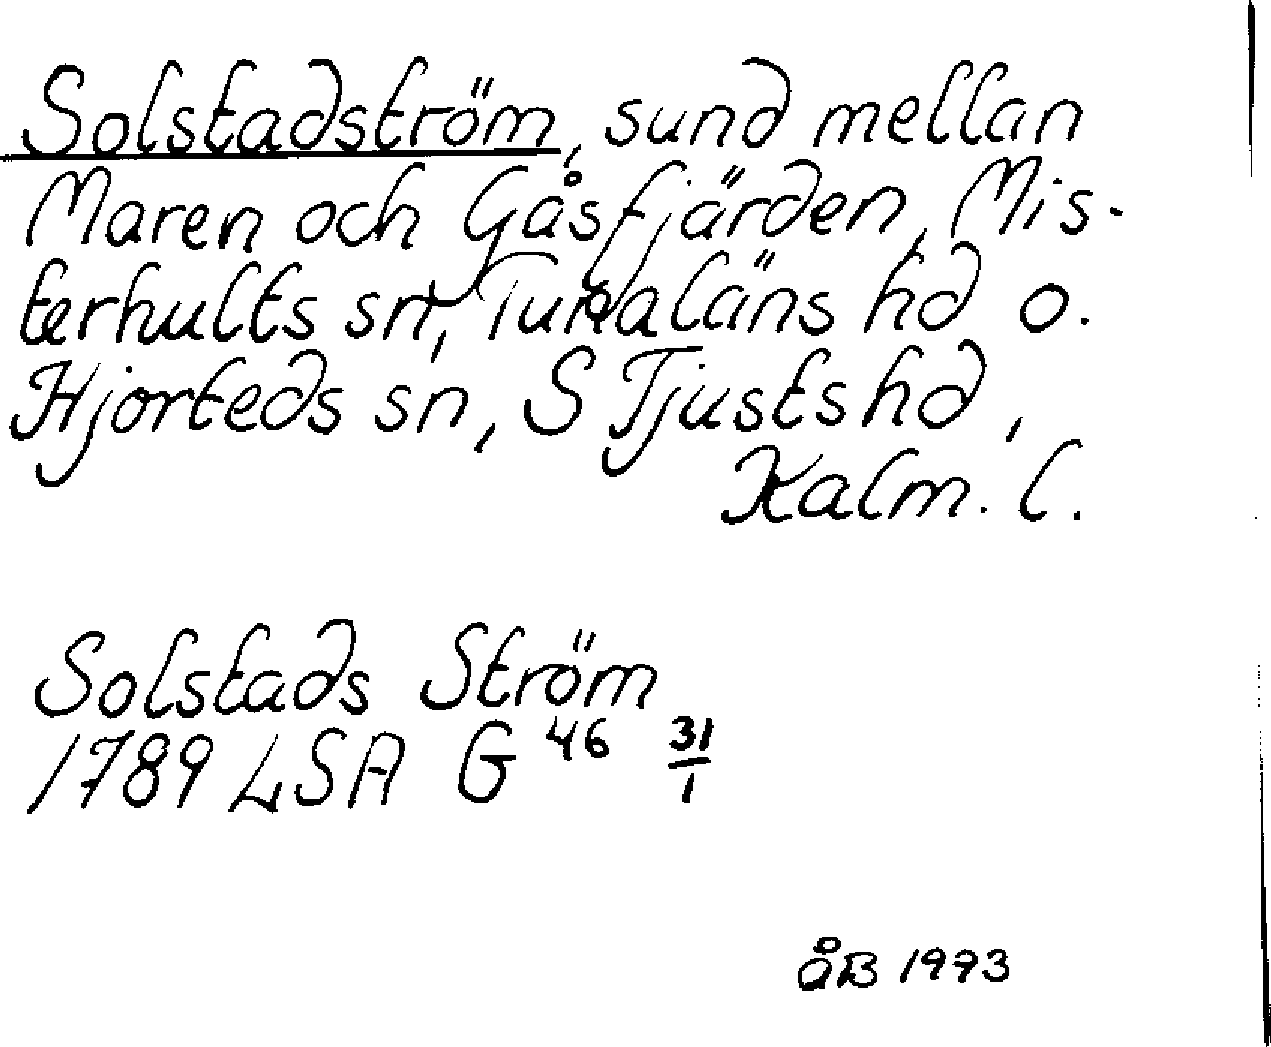 Solstadström, sund mellan
Maren och Gåsfjärden, Mis-
terhults sn, Tunaläns hd o.
Hjorteds sn, S Tjusts hd,
Kalm. l.
Solstads Ström
1789 LSA G 46 31/1
ÅB 1993